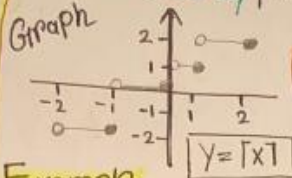 Graph
2
1
-2 -1 1 2
-1
-2
y=⌈x⌉